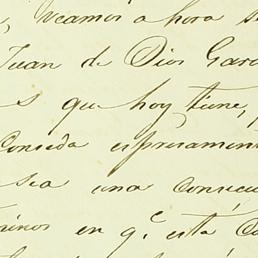 , veamos ahora s
Juan de Dios Gar
s que hoy tiene,
Conseda espresament
sea una consecu
minos en q.e esta C